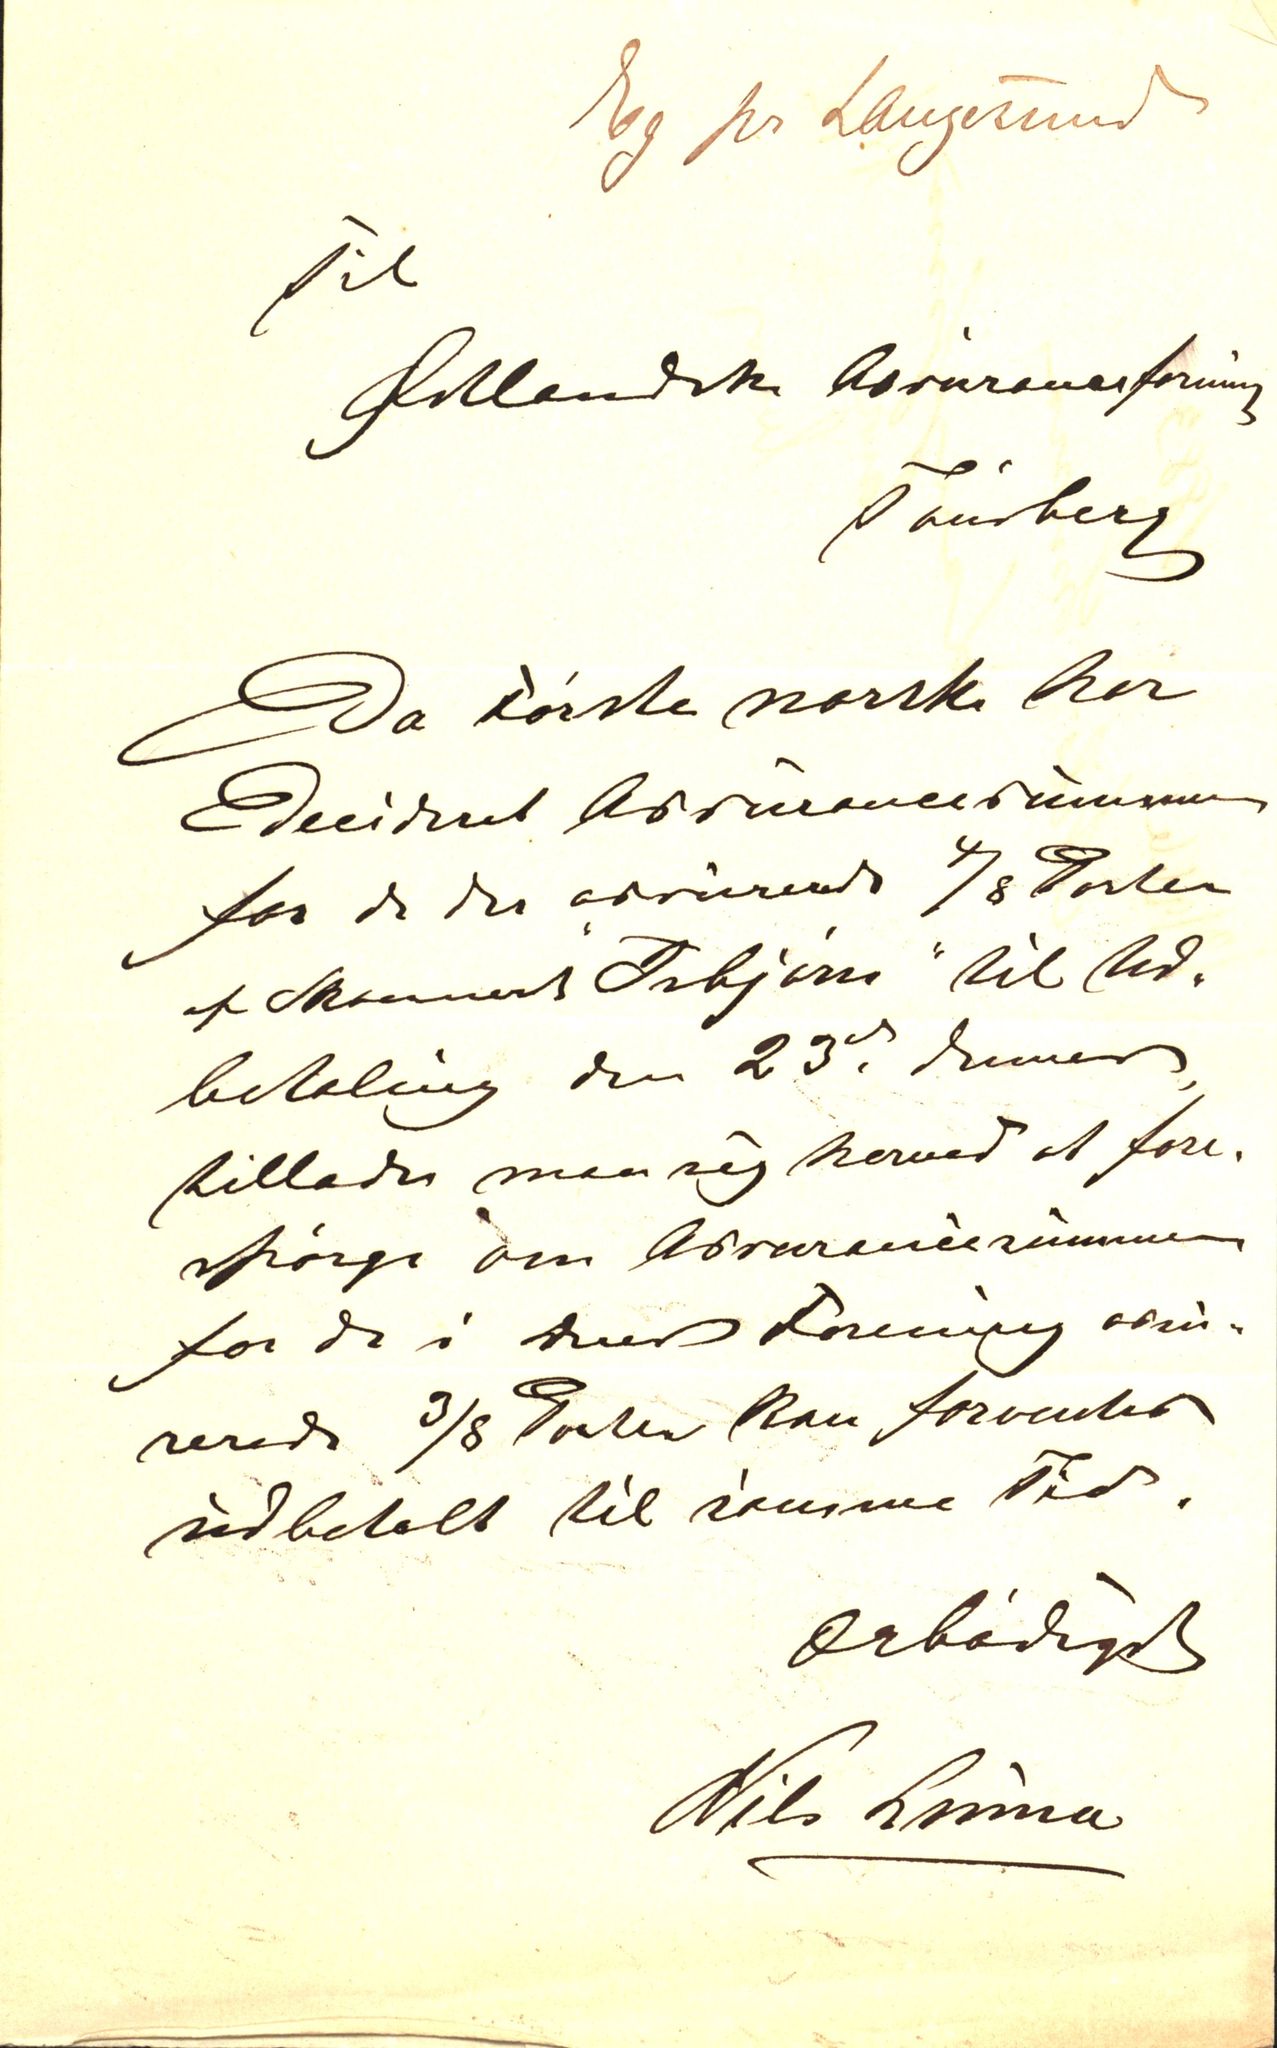 Eeg pr Langesund
Til
Østlandske Assuranceforening
Tønsberg
Da Første norske har
Decideret Assurancesummen
for de der assurerede 4/8 Parter
af Skonnert "Isbjørn" til Ud-
betaling den 23d. dennes,
tillader man sig herved at fore-
spørge om Assurancesummen
for de i deres Forening assu-
rerede 3/8 Parter kan forventes
udbetalt til samme Tid.
Ærbødigst
Nils